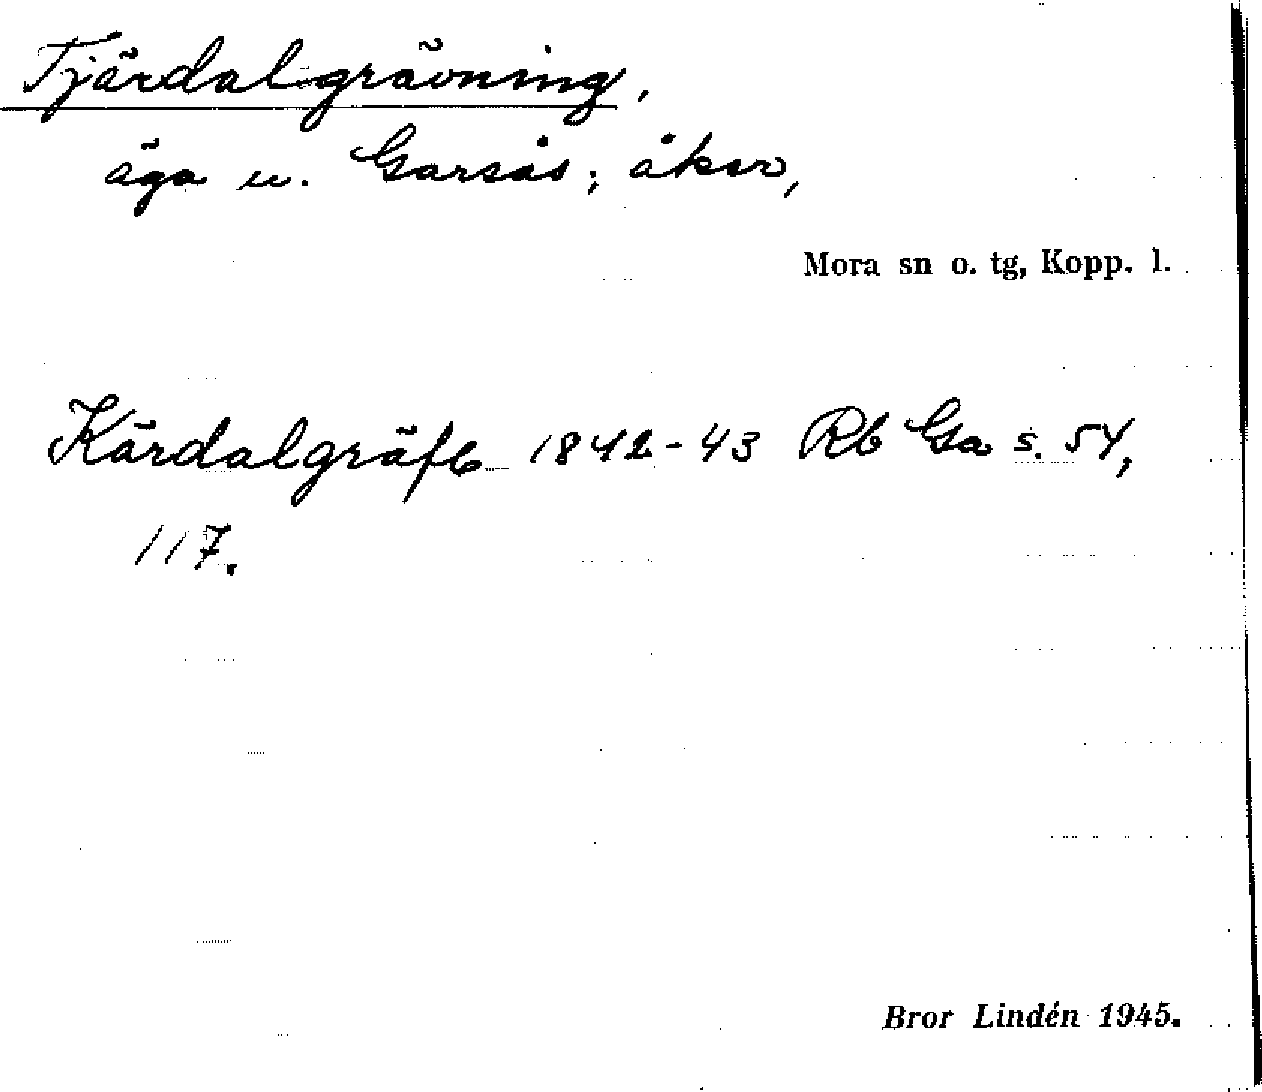 Tjärdalgrävning,
äga u. Garsås; åker,
Mora sn o. tg, Kopp. l.
Kärdalgräfb 1842-43 Rb Ga s. 54,
117.
Bror Lindén 1945.